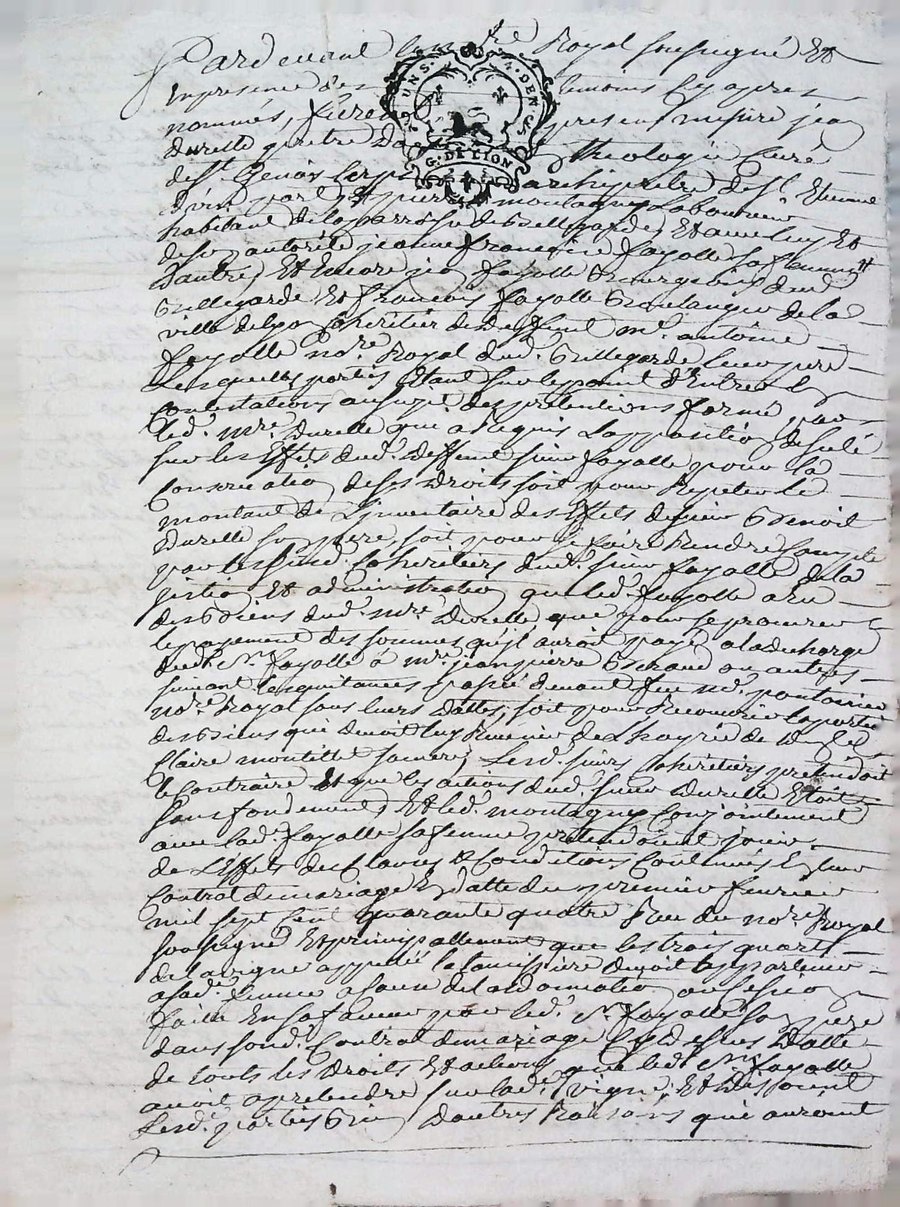 Pardevant le no.re Royal soussigné Et
En presence des temoins cy apres
nommés, furent presens messire jean
Durelle pretre Docteur en theologie Curé
de S.t Genois archipretre de S.t Etienne
d'une part Et pierre montagne Laboureur
habitant de la parroisse de Bellegarde, Et avec luy Et
de son autorité jeanne Françoise fayolle sa femme
d'autre, Et Encore jean fayolle Bourgeois dud.
Bellegarde, Et francois fayolle Boulanger de la
ville de Lyon Coheritier de Deffunt m.e antoine
fayolle no.re Royal dud. Bellegarde leur pere
Lesquelles parties Etant sur le point d'Entrer En
Contestations au sujet des pretentions formé par
led. mre. Durelle qui a Requis L'apposition de scelé
sur les Effets dud. deffunt sieur fayolle pour la
Conservation de ses Droits soit pour Repeter le
montant de L'inventaire des Effets de sieur Benoit
Durelle son pere, soit pour se faire Rendre Compte
par lesd. Coheritiers dud. sieur fayolle de la
gestion Et administration que led. fayolle a Eu
des Biens dud. mre. Durelle que pour se procurer
le payement des sommes qu'il auroit payé a la decharge
dud. S.r fayolle à mre. jean pierre Beraud ou autres
suivant les quittances passé devant feu
no.re Royal sous leurs Dattes, soit pour Recouvrer la portion
des Biens qui devoit luy Revenir de L'hoyrie de
Claire montillet sa mere, Lesd. sieurs Coheritiers pretendoit
le Contraire Et que les actions dud. sieur Durelle Etoit
sans fondement, Et led. montagne Conjointement
avec lad. fayolle sa femme pretendoient jouir
de L'Effets des Clauses & Conditions Contenues En leur
Contrat de mariage En datte du premier fevrier
mil sept Cent quarante quatre Reçu du no.re Royal
soussigné Et principallement que les trois quarts
de la vigne appellé devoit appartenir
a lad. femme a cause de la donnation ou cession
faitte En sa faveur par led. S.r fayolle son pere
dans sond. Contrat de mariage Cy dessus Datté
de touts les Droits Et actions que led. S.r fayolle
avoit a pretendre sur lad. vigne, Et Dissoient
Lesd. parties Bien d'autres Raisons qui auroint
G. DE LION